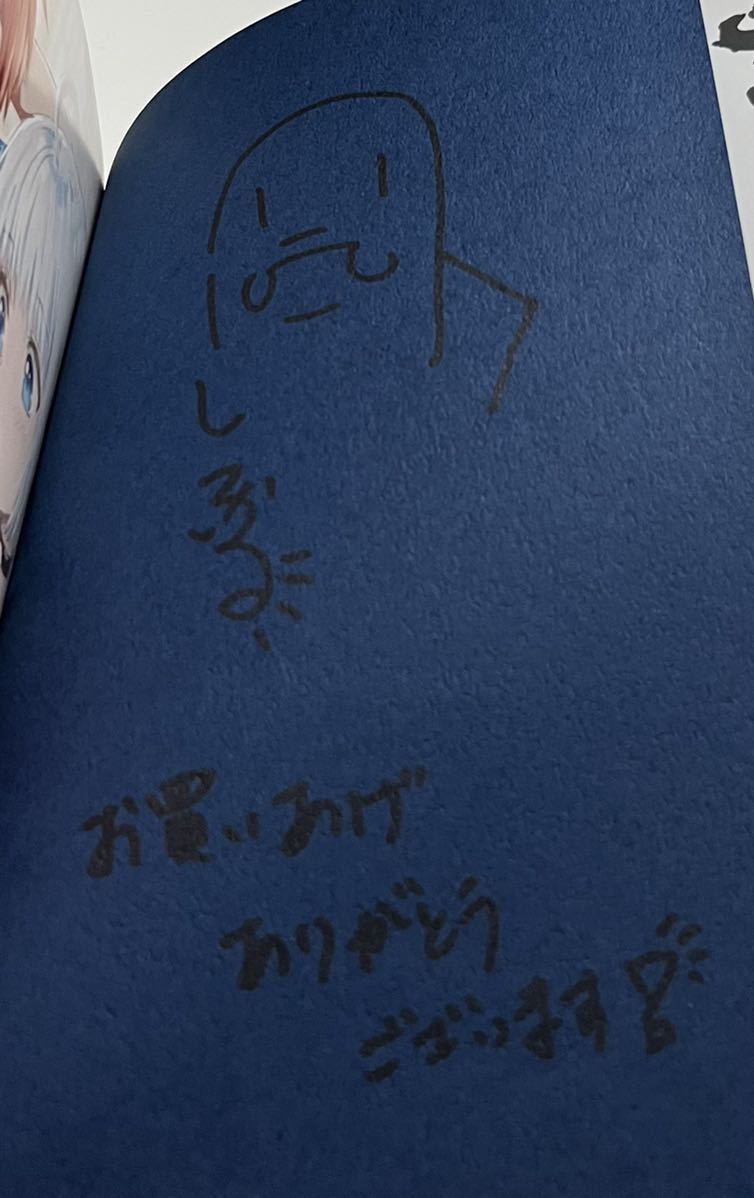 しぶる
お買いあげ
ありがとう
ございます!